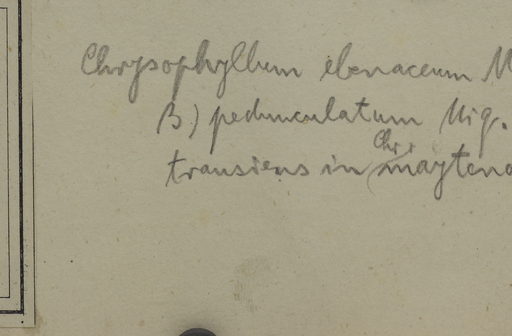 Chrysophyllum ebenaceum M
B) pedunculatum Miq.
Chr.
transiens in mayteno